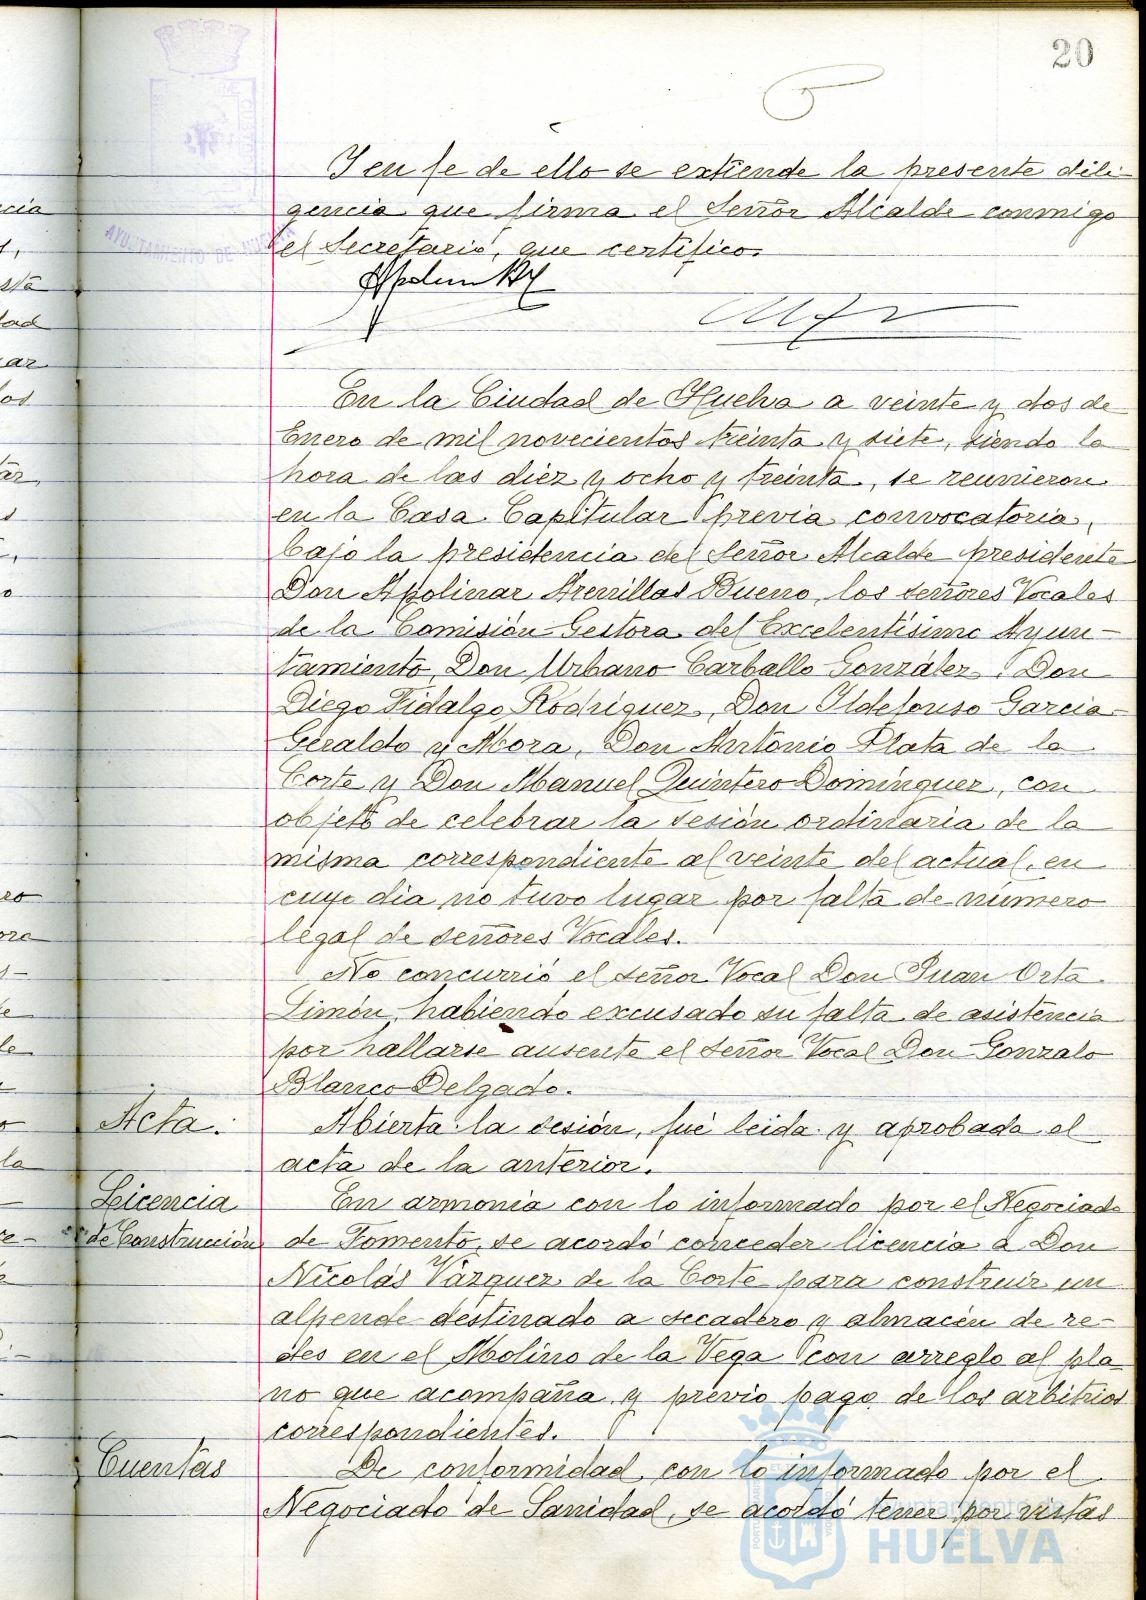 20
Y en fe de ello se extiende la presente dili-
gencia que firma el Señor Alcalde conmigo
el Secretario, que certifico.
En la Ciudad de Huelva a veinte y dos de
Enero de mil novecientos treinta y siete, siendo la
hora de las diez y ocho y treinta, se reunieron
en la Casa Capitular previa convocatoria,
bajo la presidencia del Señor Alcalde presidente
Don Apolinar Arenillas Bueno, los señores Vocales
de la Comisión Gestora del Excelentísimo Ayun-
tamiento, Don Urbano Carballo González, Don
Diego Fidalgo Rodríguez, Don Ildefonso García
Geraldo y Mora, Don Antonio Plata de la
Corte y Don Manuel Quintero Domínguez, con
objeto de celebrar la sesión ordinaria de la
misma correspondiente al veinte del actual, en
cuyo dia no tuvo lugar por falta de número
legal de señores Vocales.
No concurrió el señor Vocal Don Juan Orta
Limón, habiendo excusado su falta de asistencia
por hallarse ausente el señor Vocal Don Gonzalo
Blanco Delgado.
Acta.
Abierta la sesión, fué leida y aprobada el
acta de la anterior.
Licencia
de Construcción
En armonía con lo informado por el Negociado
de Fomento, se acordó conceder licencia a Don
Nicolás Vázquez de la Corte para construir un
alpende destinado a secadero y almacén de re-
des en el Molino de la Vega con arreglo al pla-
no que acompaña y previo pago de los arbitrios
correspondientes.
Cuentas
De conformidad con lo informado por el
Negociado de Sanidad, se acordó tener por vistas
Ayuntamiento de
HUELVA